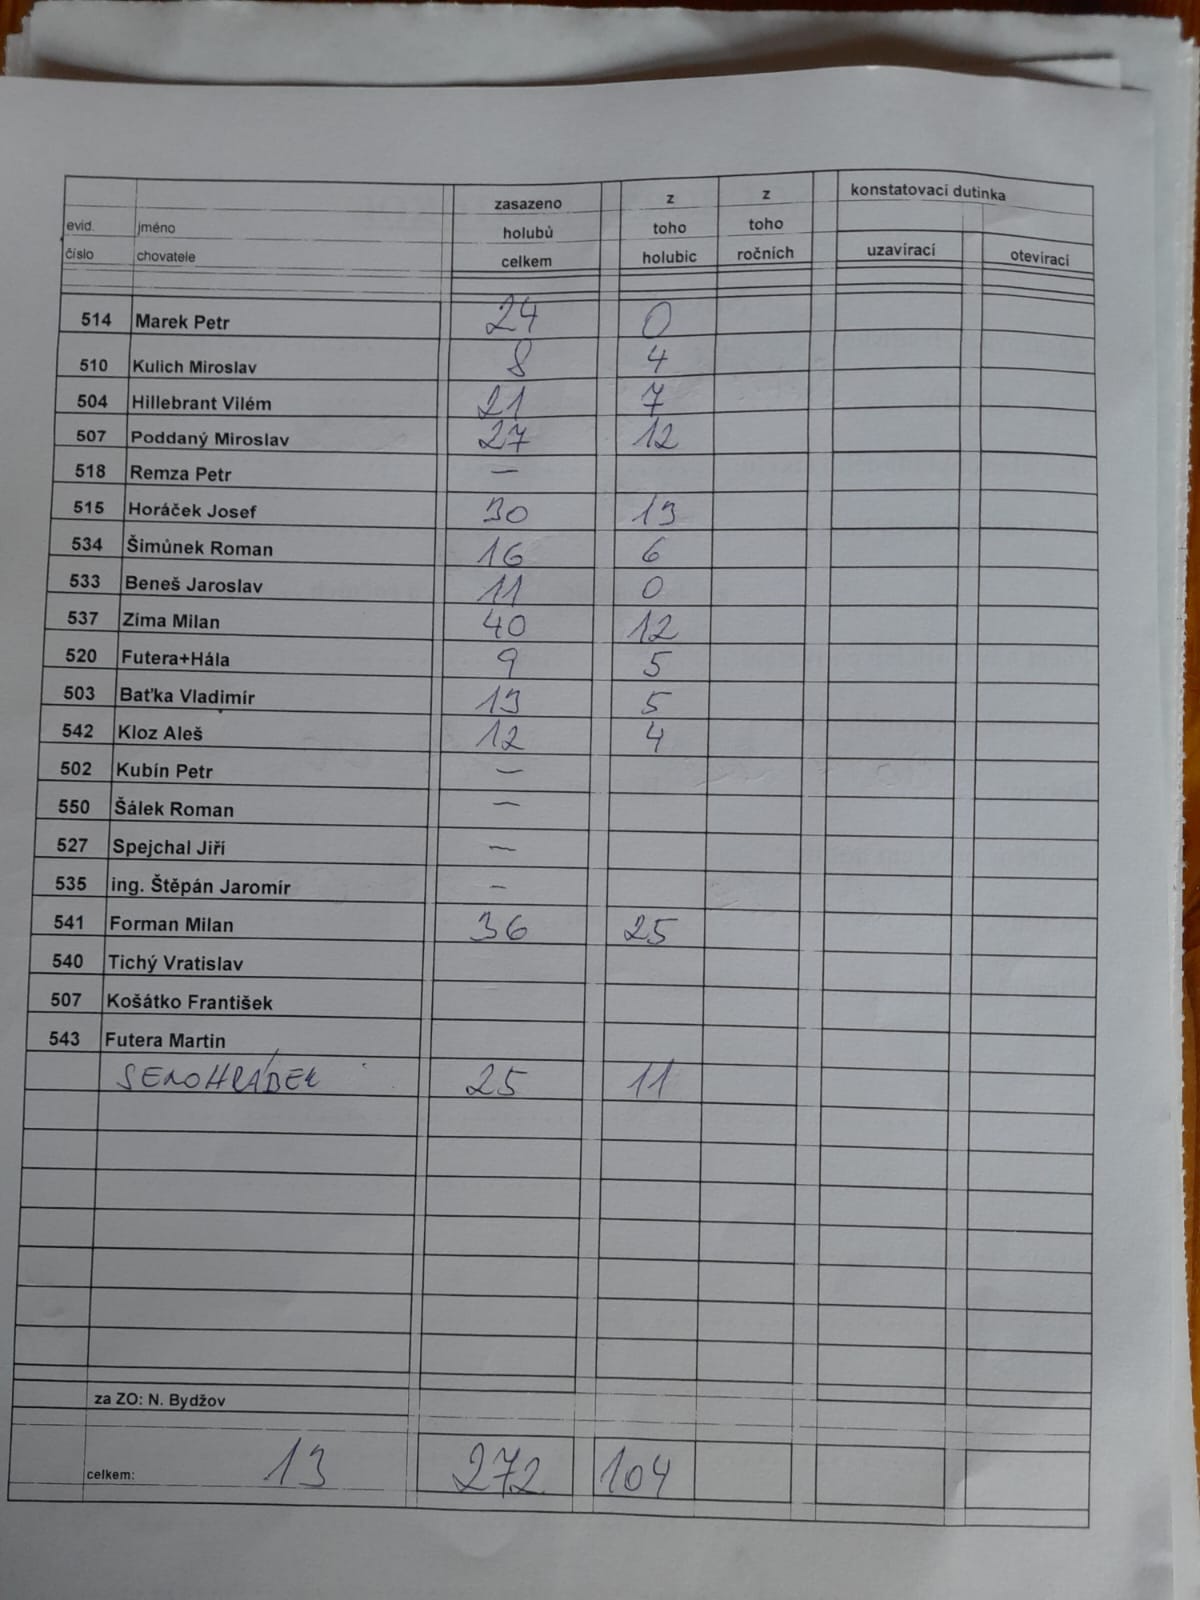 zasazeno z z konstatovací dutinka
evid. jméno holubů toho toho
číslo chovatele celkem holubic ročních uzavírací otevírací
514 Marek Petr 24 0
510 Kulich Miroslav 8 4
504 Hillebrant Vilém 21 7
507 Poddaný Miroslav 27 12
518 Remza Petr —
515 Horáček Josef 30 13
534 Šimůnek Roman 16 6
533 Beneš Jaroslav 11 0
537 Zíma Milan 40 12
520 Futera+Hála 9 5
503 Baťka Vladimír 13 5
542 Kloz Aleš 12 4
502 Kubín Petr —
550 Šálek Roman —
527 Spejchal Jiří —
535 ing. Štěpán Jaromír –
541 Forman Milan 36 25
540 Tichý Vratislav
507 Košátko František
543 Futera Martin
SENOHRÁBEK 25 11
za ZO: N. Bydžov
celkem: 13 272 104